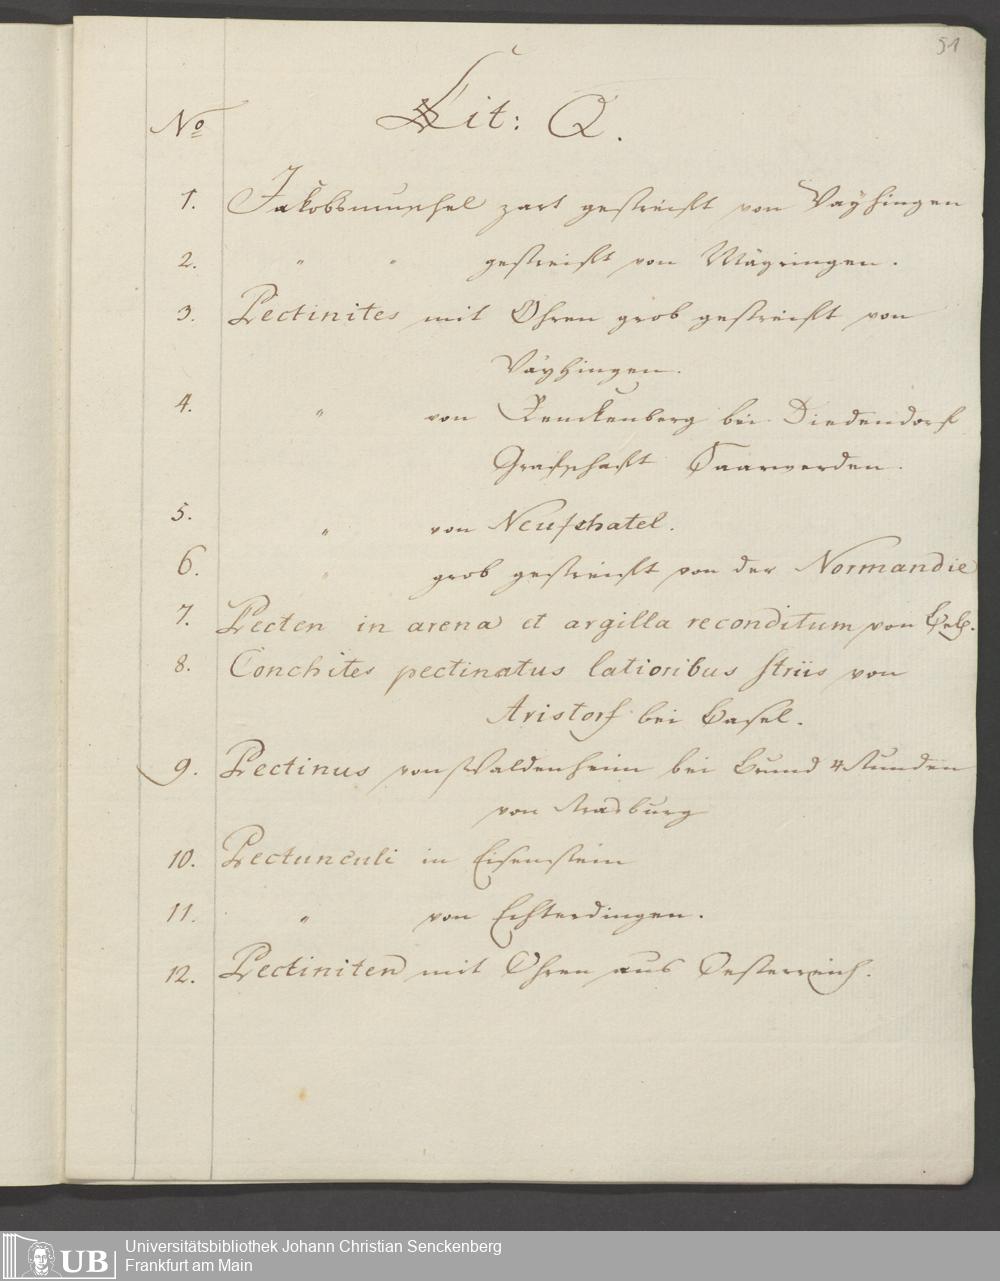 51
No Lit: Q.
1. Jakobsmuschel zart gestreift von Vayhingen
2. " " gestreift von Mägringen.
3. Pectinites mit Ohren grob gestreift von
Vayhingen.
4. " von bei Diedendorf
Grafschaft Saarwerden.
5. " von Neufchatel.
6. " grob gestreift von der Normandie
7. Pecten in arena et argilla reconditum von
8. Conchites pectinatus latioribus striis von
Aristorf bei Basel.
9. Pectinus von Waldenheim bei Brumd 4 Stunden
von Strasburg
10. Pectunculi in Eisenstein
11. " von Echterdingen.
12. Pectiniten mit Ohren aus Oesterreich.
UB
Universitätsbibliothek Johann Christian Senckenberg
Frankfurt am Main